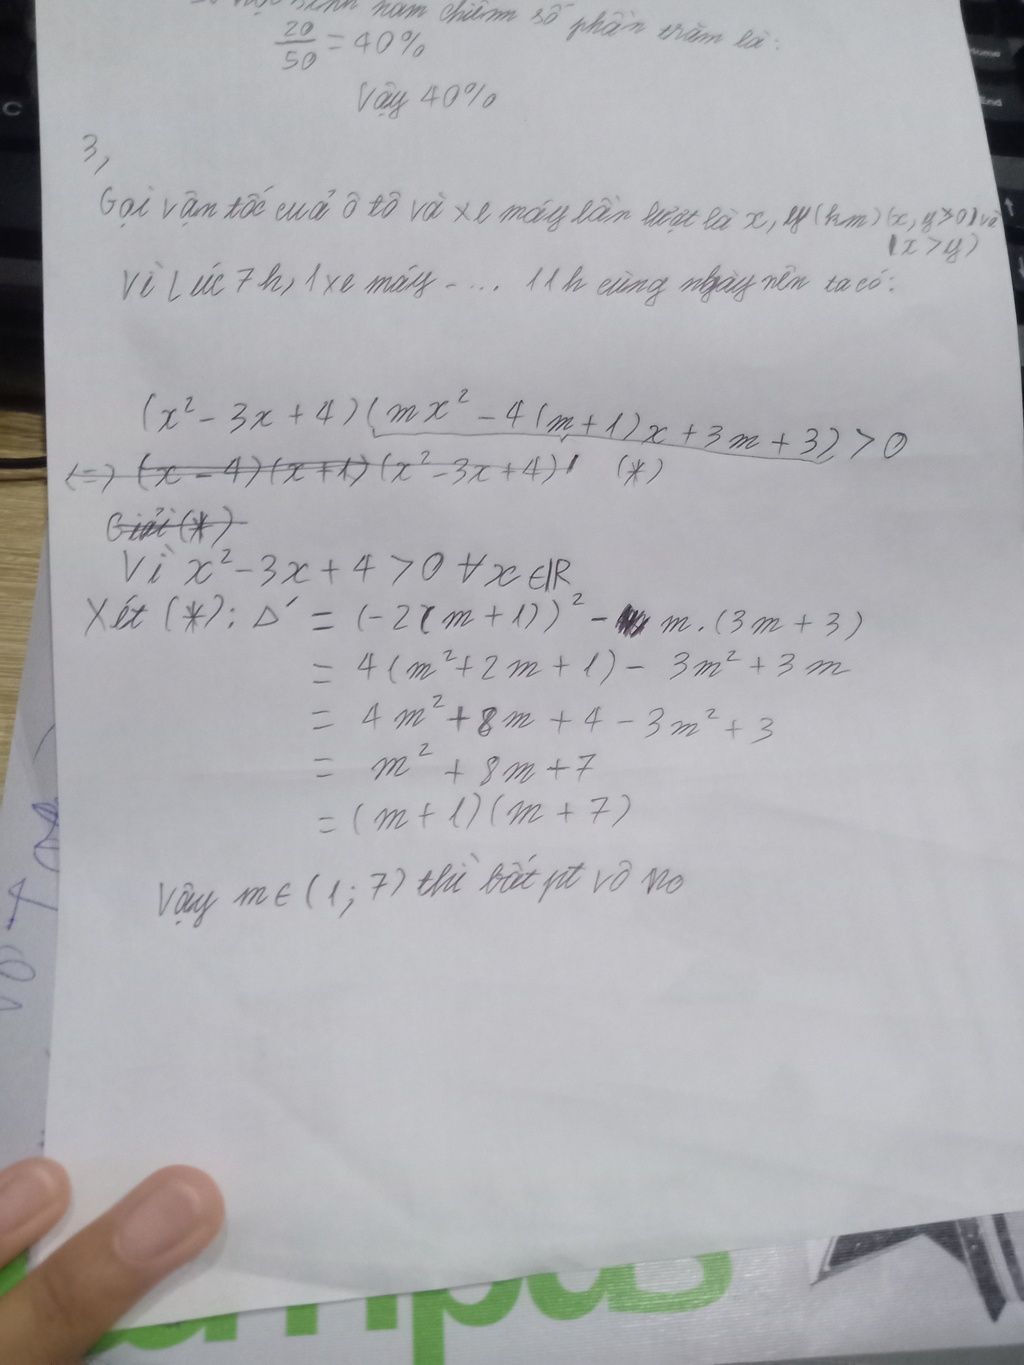 nam chiếm số phần trăm là:
20/50 = 40%
Vậy 40%
3,
Gọi vận tốc cuả ô tô và xe máy lần lượt là x, y (km) (x, y > 0) và
(x > y)
Vì Lúc 7h, 1 xe máy - ... 11h cùng ngày nên ta có:
(x² - 3x + 4)(mx² - 4(m + 1)x + 3m + 3) > 0
<=> (x - 4)(x + 1)(x² - 3x + 4) (*)
Giải (*)
Vì x² - 3x + 4 > 0 ∀x ∈ R
Xét (*): Δ' = (-2(m + 1))² - m.(3m + 3)
= 4(m² + 2m + 1) - 3m² + 3m
= 4m² + 8m + 4 - 3m² + 3
= m² + 8m + 7
= (m + 1)(m + 7)
Vậy m ∈ (1; 7) thì bất pt vô no